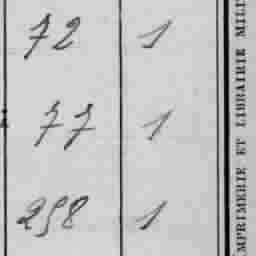 72 1
77 1
298 1
IMPRIMERIE ET LIBRAIRIE MILI